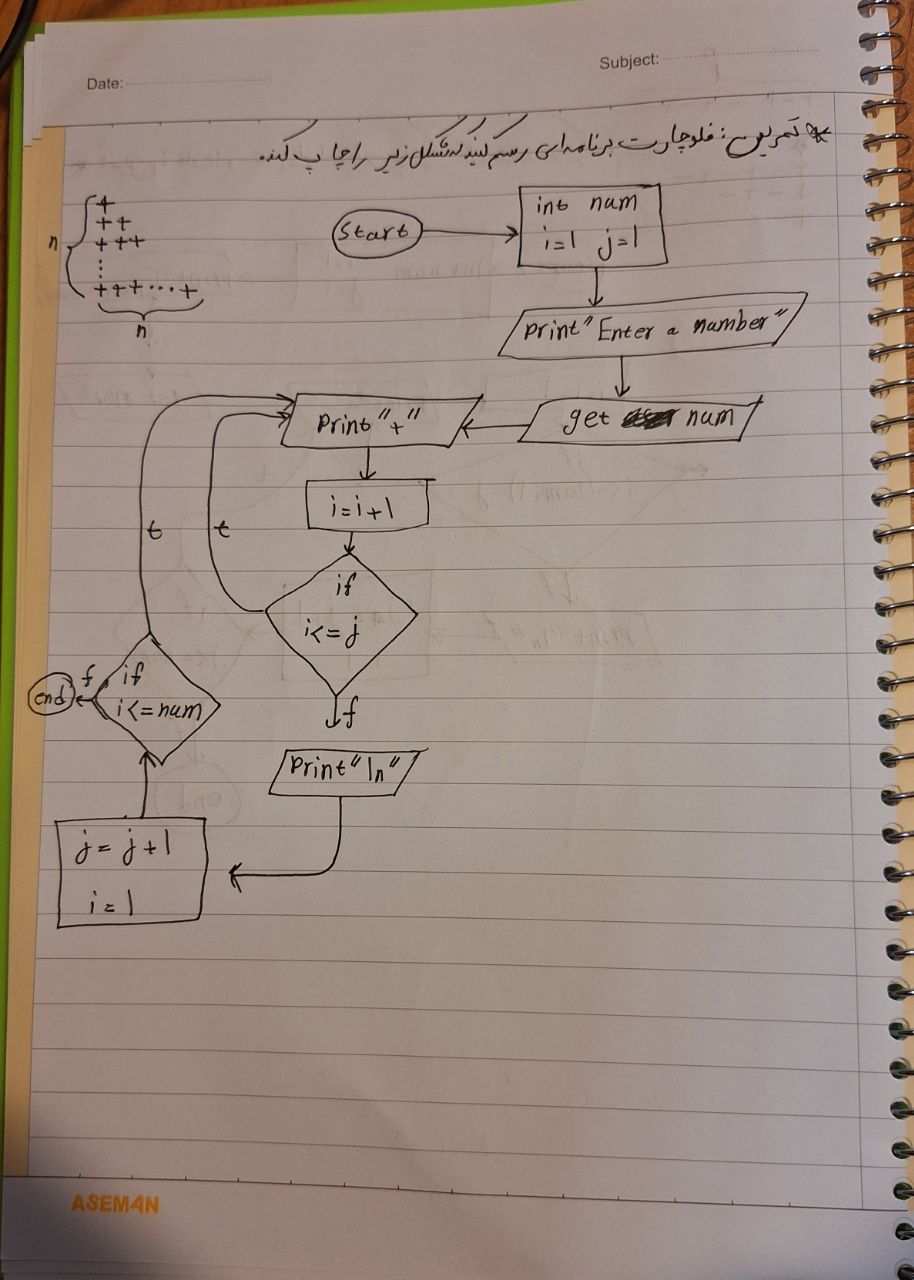 Date:
Subject:
* تمرین: فلوچارت برنامه‌ای رسم کنید که شکل زیر را چاپ کند.
+
++
+++
⋮
+++...+
n
n
Start
int num
i=1 j=1
print"Enter a number"
get num
Print"+"
i=i+1
if
i<=j
t
t
f
if
i<=num
f
end
Print"\n"
j=j+1
i=1
ASEMAN